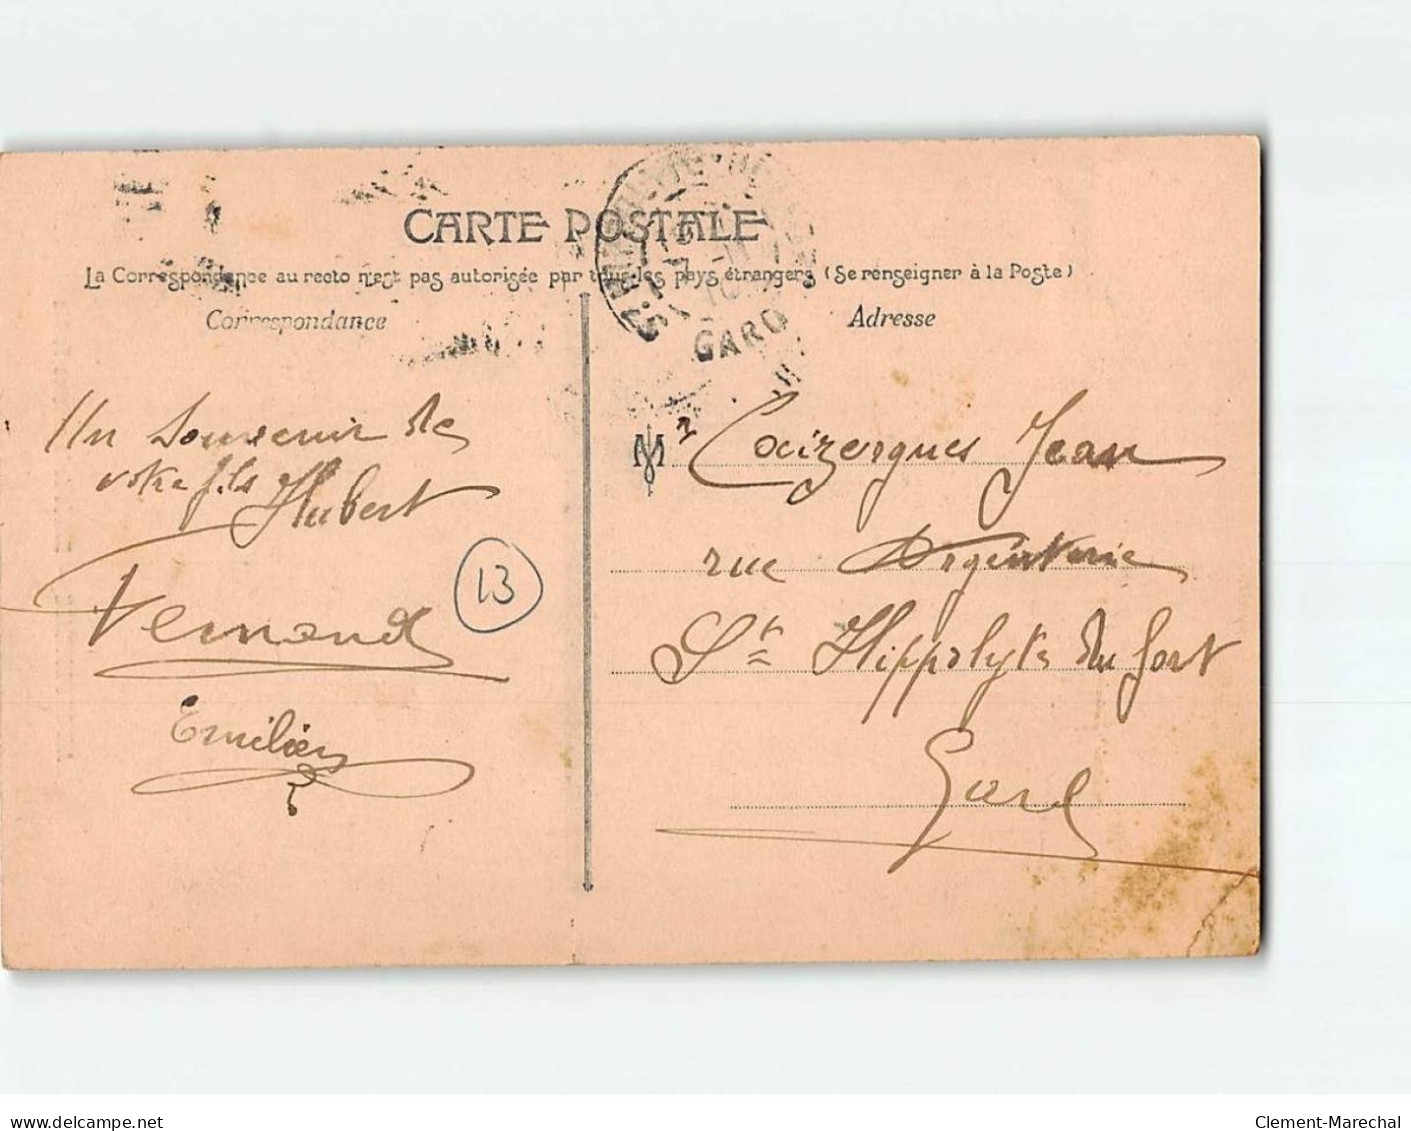 CARTE POSTALE
La Correspondance au recto n'est pas autorisée par tous les pays étrangers (Se renseigner à la Poste)
Correspondance
Adresse
GARD
Un souvenir de
votre fils Hubert
Fernand
Emilien
13
M
Coizergues Jean
rue Argenterie
St Hippolyte du fort
Gard
www.delcampe.net
Clement-Marechal